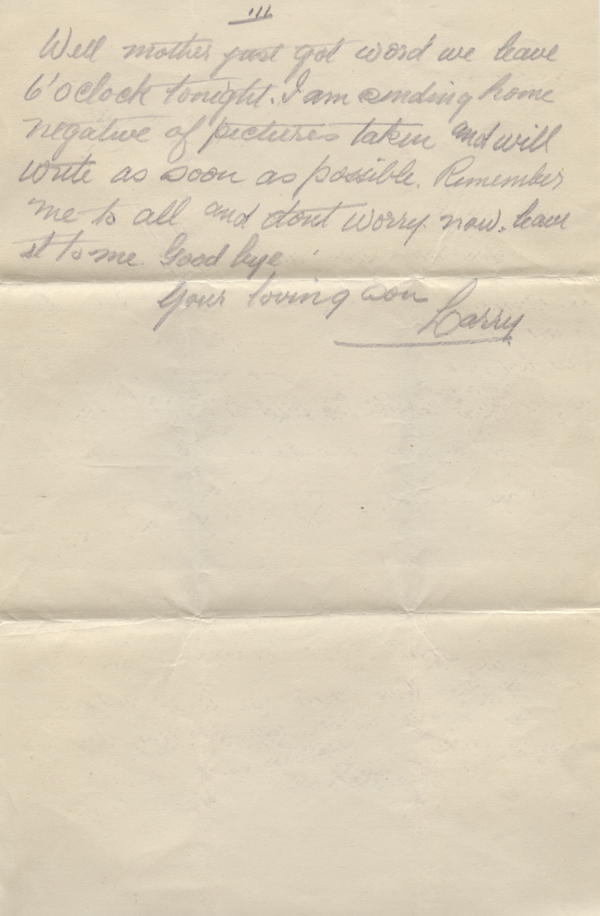 III
Well mother just got word we leave
6'oclock tonight. I am sending home
negative of pictures taken and will
write as soon as possible. Remember
me to all and dont worry now. leave
it to me Good bye
Your loving son
Larry